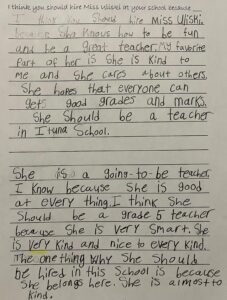 I think you should hire Miss Ulispel at your school because
I think you should hire Miss Ulishi.
because She Knows how to be fun
and be a great teacher. My favorite
Part of her is She is Kind to
me and She cares about others.
She hopes that everyone can
gets good grades and marks.
She Should be a teacher
in Ituna School.
She is a going-to-be teacher
I know because She is good
at every thing. I think She
Should be a grade 5 teacher
because She is very Smart. She
is very Kind and nice to every kind.
The one thing why She Should
be hired in this School is because
She belongs here. She is almost to
Kind.